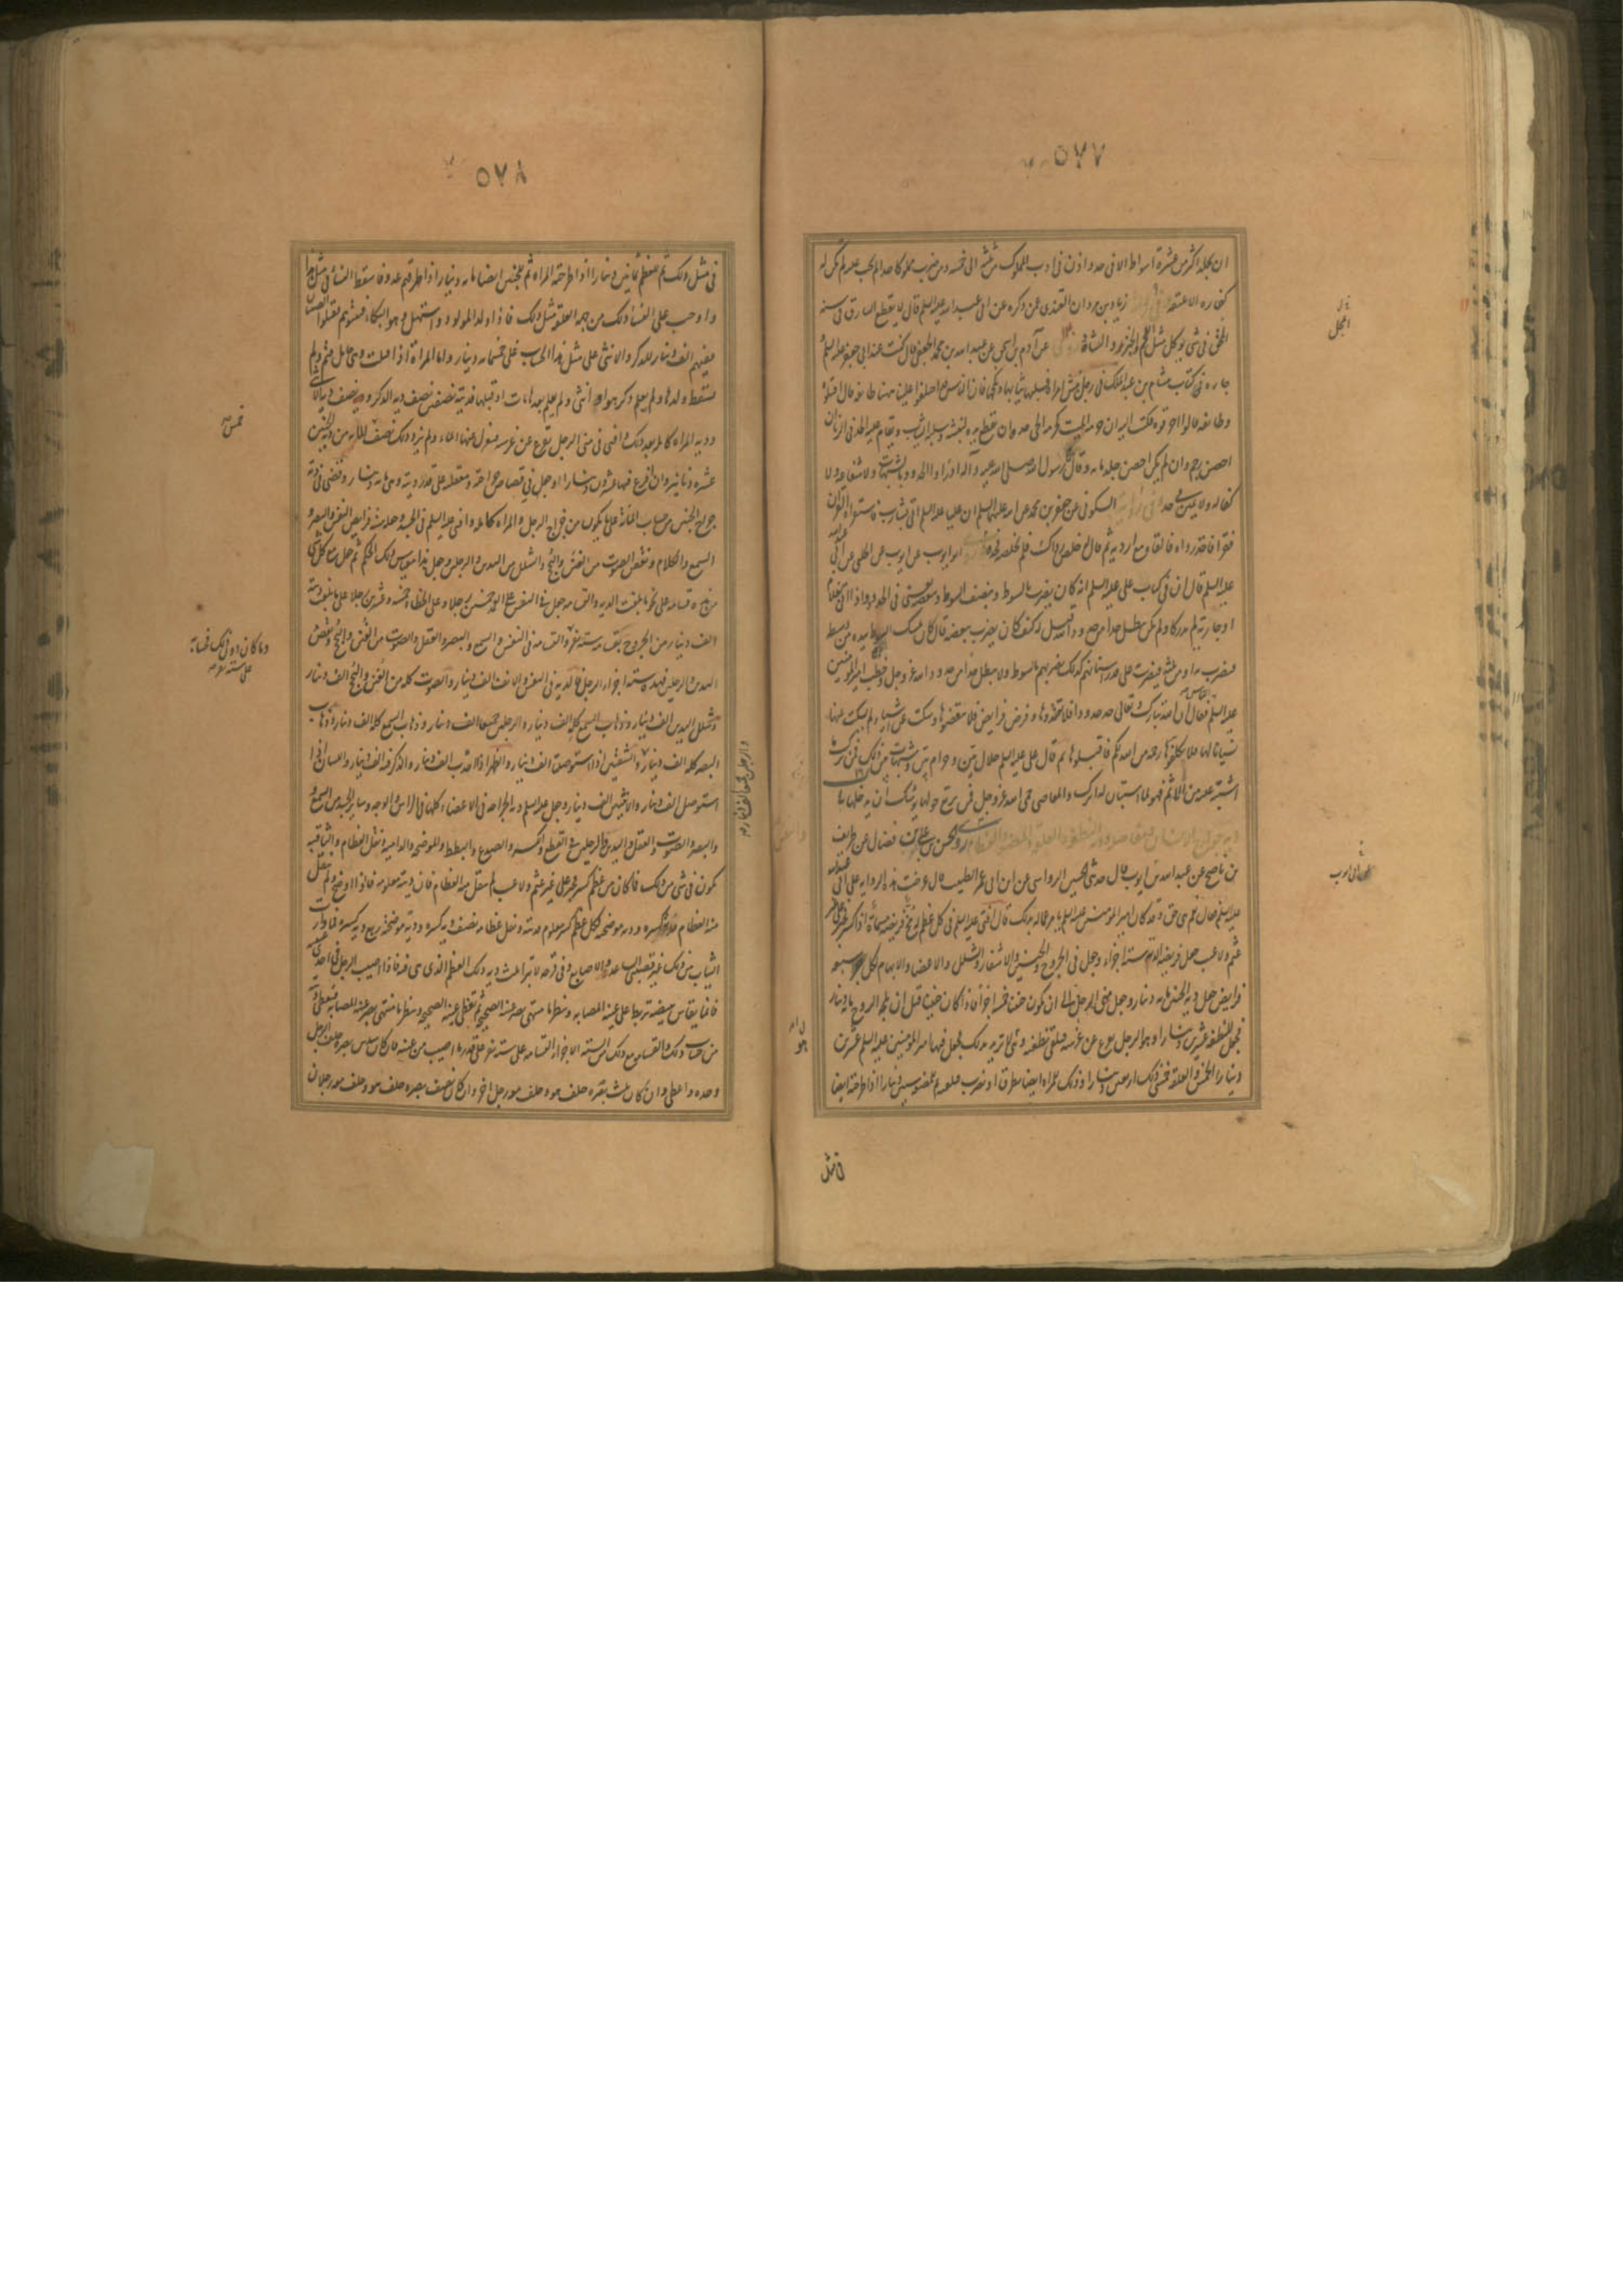 ٥٧٧
ان يجلد اكثر من عشرة اسواط الا في حد واذن في ادب المملوك من ثلثة الى خمسة ومن ضرب مملوكا حدا لم يجب عليه لم يكن له
كفارة الا عتقه زياد بن مروان القندي عمن ذكره عن ابي عبد الله عليه السلم قال لا يقطع السارق في سنة
المحق في شي يوكل مثل اللحم والخبز والقثاء عن آدم بن اسحق عن عبد الله بن محمد الجعفي قال كنت عند ابي جعفر عليه السلم
جاءه كتاب هشام بن عبد الملك في رجل نبش امراة فسلبها ثيابها ونكحها فان الناس قد اختلفوا علينا ههنا طائفة قالوا اقتلوه
وطائفة قالوا احرقوه فكتب اليه ان حرمة الميت كحرمة الحي حده ان تقطع يده لنبشه وسلبه الثياب ويقام عليه الحد في الزنا ان
احصن رجم وان لم يكن احصن جلد مائة وقال رسول الله صلى الله عليه وآله ادرؤا الحدود بالشبهات ولا شفاعة ولا
كفالة ولا يمين في حد السكوني عن جعفر بن محمد عن ابيه عليهما السلم ان عليا عليه السلم اتى بشارب فاستقراه القران
فقرا فاخذ رداه فالقاه مع اردية ثم قال خلص رداك فلم يخلصه فحده ابو ايوب عن الحلبي عن ابي عبد الله
عليه السلم قال ان في كتاب علي عليه السلم انه كان يضرب بالسوط وبنصف السوط وببعضه يعني في الحدود اذا اتى بغلام
او جارية لم يدركا ولم يكن يبطل حدا من حدود الله قيل له كيف كان يضرب ببعضه قال كان ياخذ السوط بيده من وسط
فيضرب به او من ثلثه فيضرب على قدر اسنانهم كذلك يضربهم بالسوط ولا يبطل حدا من حدود الله عز وجل وخطب امير المؤمنين
عليه السلم فقال ان الله تبارك وتعالى حد حدودا فلا تعتدوها وفرض فرايض فلا تنقضوها وسكت عن اشياء لم يسكت عنها
نسيانا لها فلا تكلفوها رحمة من الله لكم فاقبلوها ثم قال علي عليه السلم حلال بين وحرام بين وشبهات بين ذلك فمن ترك ما
اشتبه عليه من الاثم فهو لما استبان له اترك والمعاصي حمى الله عز وجل فمن يرتع حولها يوشك ان يدخلها
روى الحسن بن علي بن فضال عن ظريف
بن ناصح عن عبد الله بن ايوب قال حدثني الحسين الرواسي عن ابن ابي عمر الطبيب قال عرضت هذه الرواية على ابي عبد الله
عليه السلم فقال نعم هي حق وقد كان امير المؤمنين عليه السلم يامر عماله بذلك قال افتى عليه السلم في كل عظم له مخ فريضة مسماة اذا كسر فجبر على غير
عثم ولا عيب جعل فريضة الدية ستة اجزاء وجعل في الجروح والجنين والاشفار والشلل والاعضاء والابهام لكل جزء ستة
فرايض جعل دية الجنين مائة دينار وجعل مني الرجل الى ان يكون جنينا خمسة اجزاء فاذا كان جنينا قبل ان يلجه الروح مائة دينار
فجعل للنطفة عشرين دينارا وهو الرجل يفزع عن عرسه فيلقي نطفته وهي لا تريد ذلك فجعل فيها امير المؤمنين عليه السلم عشرين
دينارا الخمس وللعلقة خمسي ذلك اربعين دينارا وذلك للمراة ايضا تطرق او تضرب فتلقيه ثم للمضغة ستين دينارا اذا طرحته ايضا
في مثل
٥٧٨
في مثل ذلك ثم للعظم ثمانين دينارا اذا طرحته المراة ثم للجنين ايضا مائة دينار اذا طرقهم عدو فاسقط النساء في مثل هذا
واوجب على النساء ذلك من جهة المعقلة مثل ذلك فاذا ولد المولود واستهل وهو البكاء فبيتوهم فقتلوا الصبيان
ففيهم الف دينار للذكر والانثى على مثل هذا الحساب على خمسمائة دينار واما المراة اذا قتلت وهي حامل متم ولم
تسقط ولدها ولم يعلم ذكر هو او انثى ولم يعلم بعدها مات او قبلها فديته نصفين نصف دية الذكر ونصف دية الانثى
ودية المراة كاملة بعد ذلك وافتى في مني الرجل يفزع عن عرسه فيعزل عنها الماء ولم ترد ذلك نصف خمس المائة من دية الجنين
عشرة دنانير وان افرغ فيها عشرون دينارا وجعل في قصاص جراحته ومعقلته على قدر ديته وهي مائة دينار وقضى في دية
جراح الجنين من حساب المائة على ما يكون من جراح الرجل والمراة كاملة وافتى عليه السلم في الجسد وجعله ستة فرايض النفس والبصر و
السمع والكلام ونقص الصوت من الغنن والبحح والشلل من اليدين والرجلين وجعل هذا بقياس ذلك الحكم ثم جعل مع كل شي
من هذه قسامة على نحو ما بلغت الدية والقسامة جعل في النفس على العمد خمسين رجلا وعلى الخطاء خمسة وعشرين رجلا على ما بلغت ديته
الف دينار من الجروح بقسامة ستة نفر والقسامة في النفس والسمع والبصر والعقل والصوت من الغنن والبحح ونقص
اليدين والرجلين فهذه ستة اجزاء الرجل فالدية في النفس الف دينار والانف الف دينار والصوت كله من الغنن والبحح الف دينار
وشلل اليدين الف دينار وذهاب السمع كله الف دينار والرجلين جميعا الف دينار وذهاب السمع كله الف دينار وذهاب
البصر كله الف دينار والشفتين اذا استوصلتا الف دينار والظهر اذا احدب الف دينار والذكر فيه الف دينار واللسان اذا
استوصل الف دينار والانثيين الف دينار وجعل عليه السلم دية الجراحة في الاعضاء كلها في الراس والوجه وسائر الجسد من السمع و
والبصر والصوت والعقل واليدين والرجلين في القطع والكسر والصدع والبطط والموضحة والدامية ونقل العظام والثاقبة
يكون في شي من ذلك فما كان من عظم كسر فجبر على غير عثم ولا عيب لم ينقل منه العظام فان ديته معلومة فاذا اوضح ولم ينقل
منه العظام فدية كسره ودية موضحته ولكل عظم كسر معلوم ديته ونقل عظامه نصف دية كسره ودية موضحته ربع دية كسره فما وارت
الثياب من ذلك غير قصبتي الساعد والاصابع وفي قرحة لا تبرا ثلث دية ذلك العظم الذي هي فيه فاذا اصيب الرجل في احدى عينيه
فانما يقاس ببيضة تربط على عينه المصابة وينظر ما منتهى بصر عينه الصحيحة ثم تغطى عينه الصحيحة وينظر ما منتهى بصر عينه المصابة فيعطى ديته
من حساب ذلك والقسامة مع ذلك من الستة الاجزاء القسامة على ستة نفر على قدر ما اصيب من عينه فان كان سدس بصره حلف الرجل
وحده واعطي وان كان ثلث بصره حلف هو وحلف معه رجل اخر وان كان نصف بصره حلف هو وحلف معه رجلان
خمس
وما كان دون ذلك فحسابه
على ستة نفر
والرجلين جميعا الف دينار